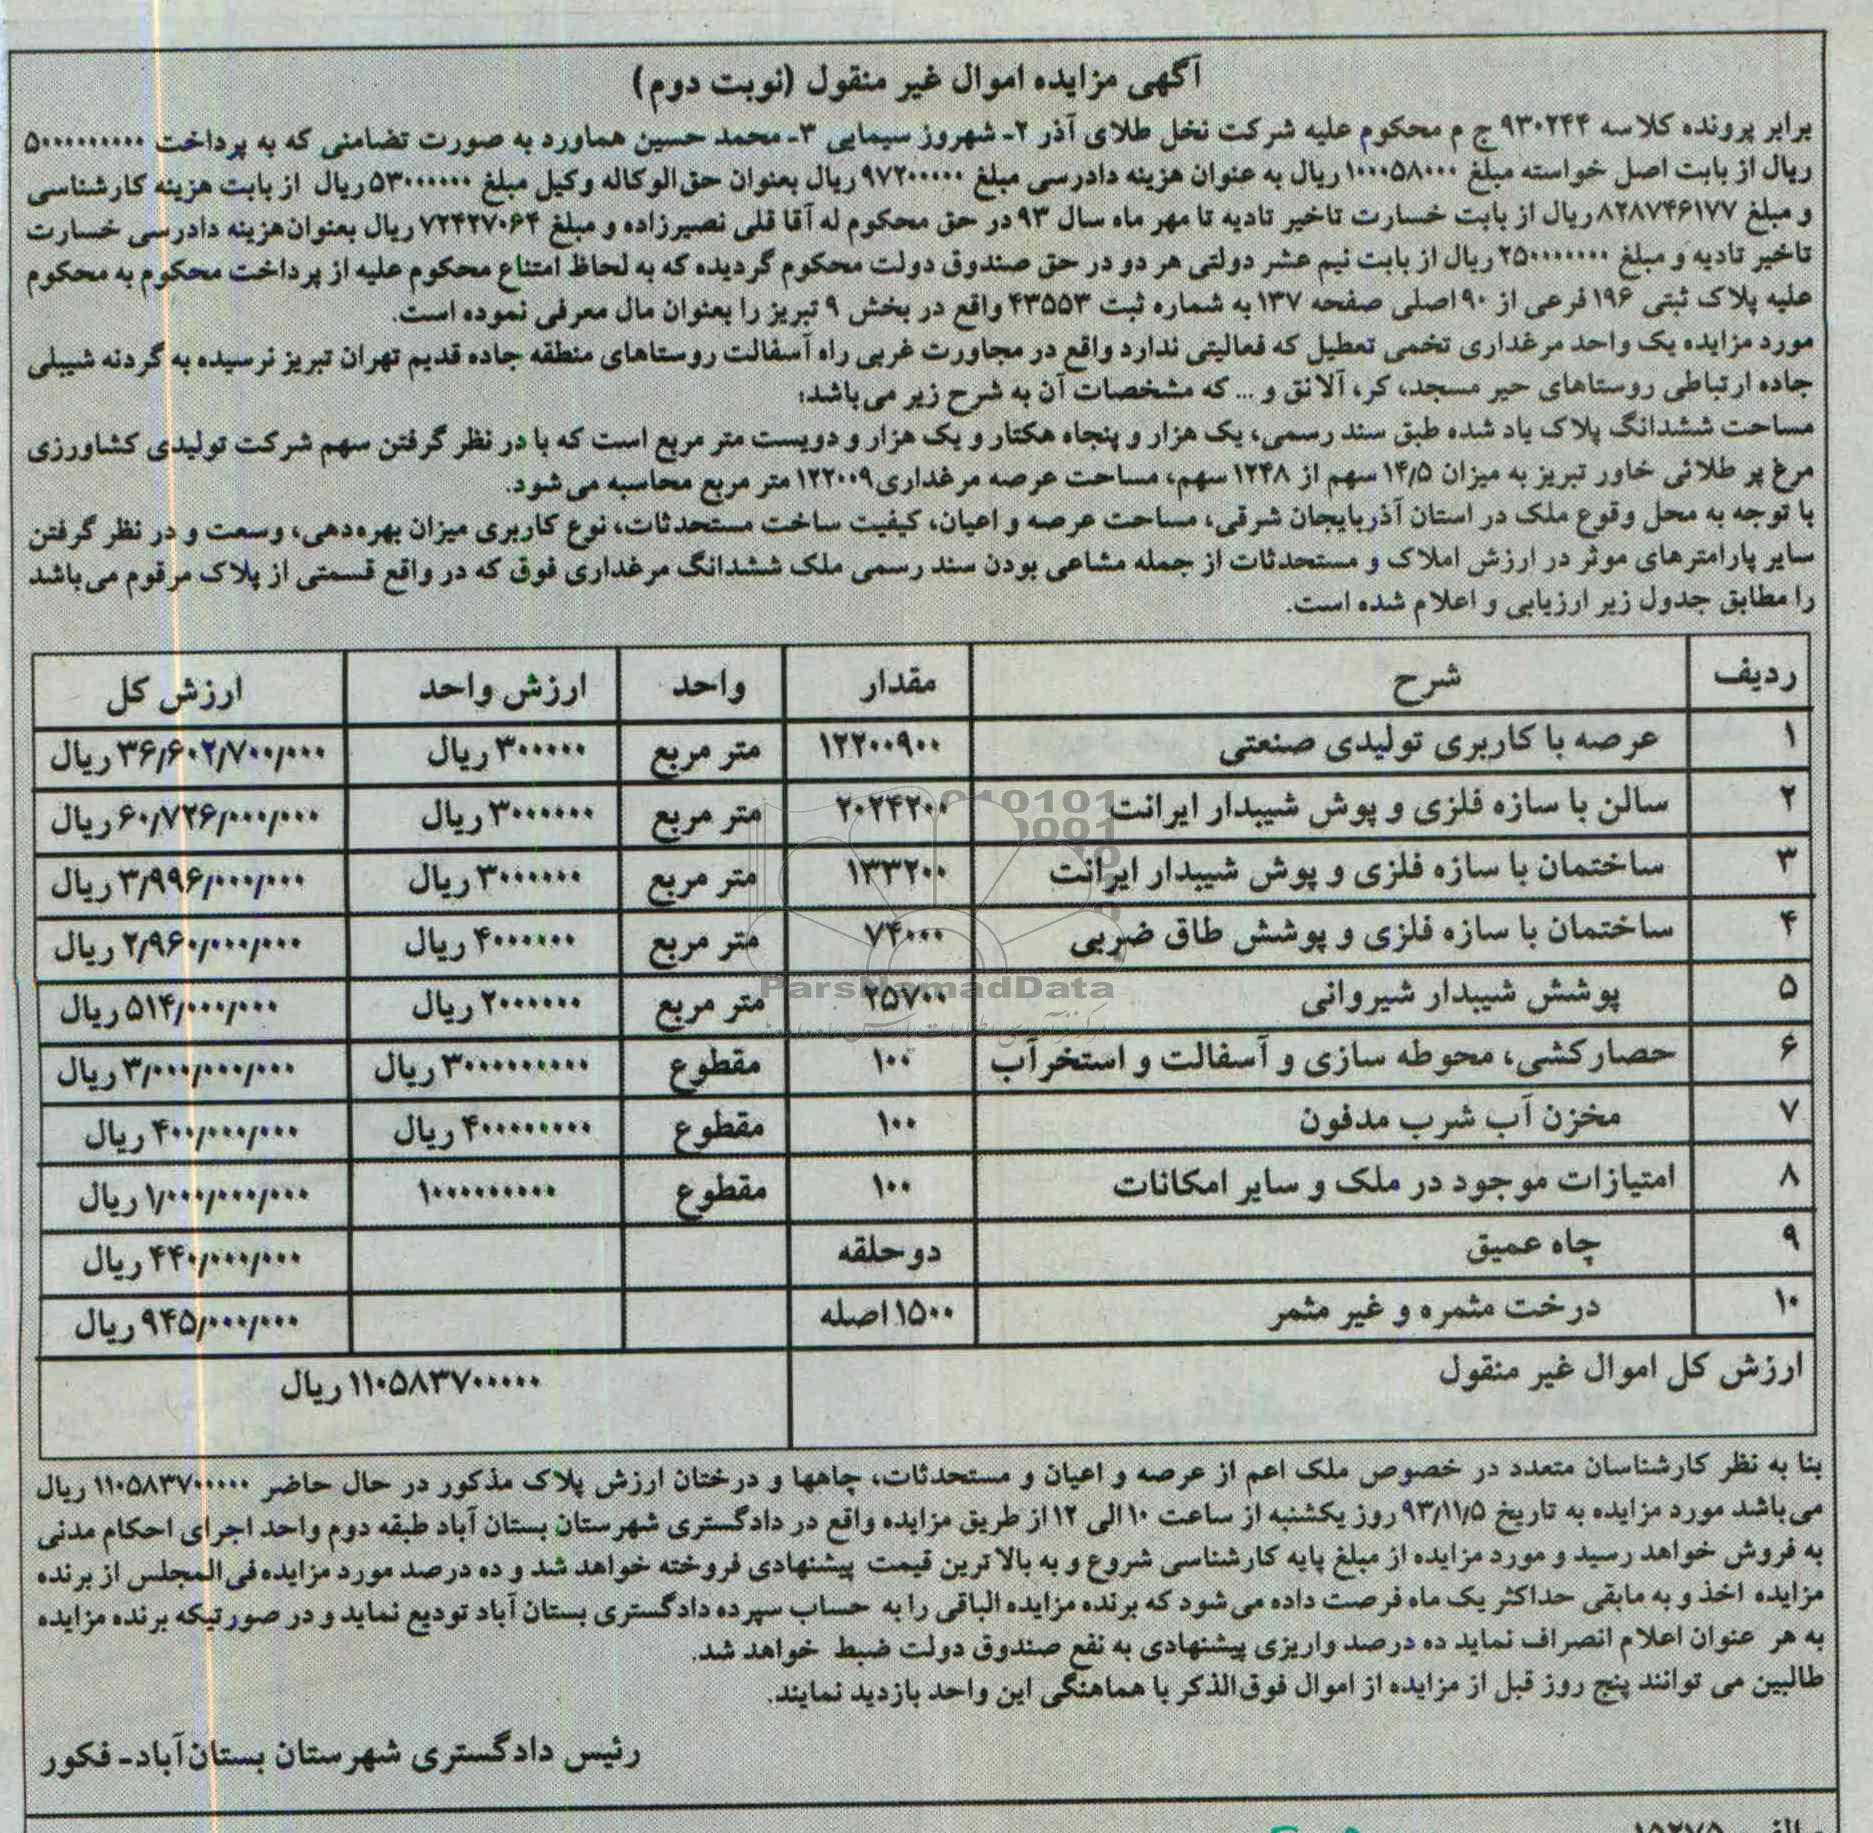 آگهی مزایده اموال غیر منقول (نوبت دوم)
برابر پرونده کلاسه ۹۳۰۲۴۴ ج م محکوم علیه شرکت نخل طلای آذر ۲ـ شهروز سیمایی ۳ـ محمد حسین هماورد به صورت تضامنی که به پرداخت ۵۰۰۰۰۰۰۰۰۰
ریال از بابت اصل خواسته مبلغ ۱۰۰۰۵۸۰۰۰ ریال به عنوان هزینه دادرسی مبلغ ۹۷۲۰۰۰۰۰ ریال بعنوان حق‌الوکاله وکیل مبلغ ۵۳۰۰۰۰۰۰ ریال از بابت هزینه کارشناسی
و مبلغ ۸۲۸۷۴۶۱۷۷ ریال از بابت خسارت تاخیر تادیه تا مهر ماه سال ۹۳ در حق محکوم له آقا قلی نصیرزاده و مبلغ ۷۲۴۲۷۰۶۴ ریال بعنوان هزینه دادرسی خسارت
تاخیر تادیه و مبلغ ۲۵۰۰۰۰۰۰۰ ریال از بابت نیم عشر دولتی هر دو در حق صندوق دولت محکوم گردیده که به لحاظ امتناع محکوم علیه از پرداخت محکوم به محکوم
علیه پلاک ثبتی ۱۹۶ فرعی از ۹۰ اصلی صفحه ۱۳۷ به شماره ثبت ۴۳۵۵۳ واقع در بخش ۹ تبریز را بعنوان مال معرفی نموده است.
مورد مزایده یک واحد مرغداری تخمی تعطیل که فعالیتی ندارد واقع در مجاورت غربی راه آسفالت روستاهای منطقه جاده قدیم تهران تبریز نرسیده به گردنه شیبلی
جاده ارتباطی روستاهای حیر مسجد، کر، آلانق و ... که مشخصات آن به شرح زیر می‌باشد:
مساحت ششدانگ پلاک یاد شده طبق سند رسمی، یک هزار و پنجاه هکتار و یک هزار و دویست متر مربع است که با در نظر گرفتن سهم شرکت تولیدی کشاورزی
مرغ پر طلائی خاور تبریز به میزان ۱۴/۵ سهم از ۱۲۴۸ سهم، مساحت عرصه مرغداری ۱۲۲۰۰۹ متر مربع محاسبه می‌شود.
با توجه به محل وقوع ملک در استان آذربایجان شرقی، مساحت عرصه و اعیان، کیفیت ساخت مستحدثات، نوع کاربری میزان بهره‌دهی، وسعت و در نظر گرفتن
سایر پارامترهای موثر در ارزش املاک و مستحدثات از جمله مشاعی بودن سند رسمی ملک ششدانگ مرغداری فوق که در واقع قسمتی از پلاک مرقوم می‌باشد
را مطابق جدول زیر ارزیابی و اعلام شده است.
ردیف شرح مقدار واحد ارزش واحد ارزش کل
۱ عرصه با کاربری تولیدی صنعتی ۱۲۲۰۰۹۰۰ متر مربع ۳۰۰۰۰۰ ریال ۳۶/۶۰۲/۷۰۰/۰۰۰ ریال
۲ سالن با سازه فلزی و پوش شیبدار ایرانت ۲۰۲۴۲۰۰ متر مربع ۳۰۰۰۰۰۰ ریال ۶۰/۷۲۶/۰۰۰/۰۰۰ ریال
۳ ساختمان با سازه فلزی و پوش شیبدار ایرانت ۱۳۳۲۰۰ متر مربع ۳۰۰۰۰۰۰ ریال ۳/۹۹۶/۰۰۰/۰۰۰ ریال
۴ ساختمان با سازه فلزی و پوشش طاق ضربی ۷۴۰۰۰ متر مربع ۴۰۰۰۰۰۰ ریال ۲/۹۶۰/۰۰۰/۰۰۰ ریال
۵ پوشش شیبدار شیروانی ۲۵۷۰۰ متر مربع ۲۰۰۰۰۰۰ ریال ۵۱۴/۰۰۰/۰۰۰ ریال
۶ حصارکشی، محوطه سازی و آسفالت و استخر آب ۱۰۰ مقطوع ۳۰۰۰۰۰۰۰۰۰ ریال ۳/۰۰۰/۰۰۰/۰۰۰ ریال
۷ مخزن آب شرب مدفون ۱۰۰ مقطوع ۴۰۰۰۰۰۰۰۰ ریال ۴۰۰/۰۰۰/۰۰۰ ریال
۸ امتیازات موجود در ملک و سایر امکانات ۱۰۰ مقطوع ۱۰۰۰۰۰۰۰۰۰ ۱/۰۰۰/۰۰۰/۰۰۰ ریال
۹ چاه عمیق دو حلقه ۴۴۰/۰۰۰/۰۰۰ ریال
۱۰ درخت مثمره و غیر مثمر ۱۵۰۰ اصله ۹۴۵/۰۰۰/۰۰۰ ریال
ارزش کل اموال غیر منقول ۱۱۰۵۸۳۷۰۰۰۰۰ ریال
بنا به نظر کارشناسان متعدد در خصوص ملک اعم از عرصه و اعیان و مستحدثات، چاهها و درختان ارزش پلاک مذکور در حال حاضر ۱۱۰۵۸۳۷۰۰۰۰۰ ریال
می‌باشد مورد مزایده به تاریخ ۹۳/۱۱/۵ روز یکشنبه از ساعت ۱۰ الی ۱۲ از طریق مزایده واقع در دادگستری شهرستان بستان آباد طبقه دوم واحد اجرای احکام مدنی
به فروش خواهد رسید و مورد مزایده از مبلغ پایه کارشناسی شروع و به بالاترین قیمت پیشنهادی فروخته خواهد شد و ده درصد مورد مزایده فی‌المجلس از برنده
مزایده اخذ و به مابقی حداکثر یک ماه فرصت داده می‌شود که برنده مزایده الباقی را به حساب سپرده دادگستری بستان آباد تودیع نماید و در صورتیکه برنده مزایده
به هر عنوان اعلام انصراف نماید ده درصد واریزی پیشنهادی به نفع صندوق دولت ضبط خواهد شد.
طالبین می توانند پنج روز قبل از مزایده از اموال فوق‌الذکر با هماهنگی این واحد بازدید نمایند.
رئیس دادگستری شهرستان بستان‌آباد ـ فکور